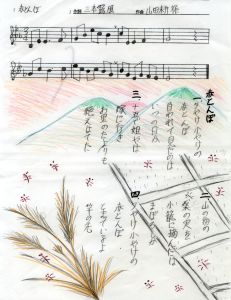 赤とんぼ
作詞 三木露風
作曲 山田耕筰
赤とんぼ
一 夕やけ小やけの
赤とんぼ
おわれてみたのは
いつの日か
二 山の畑の
桑の実を
小籠に摘んだは
まぼろしか
三 十五で姐やは
嫁に行き
お里のたよりも
絶えはてた
四 夕やけ小やけの
赤とんぼ
とまっているよ
竿の先